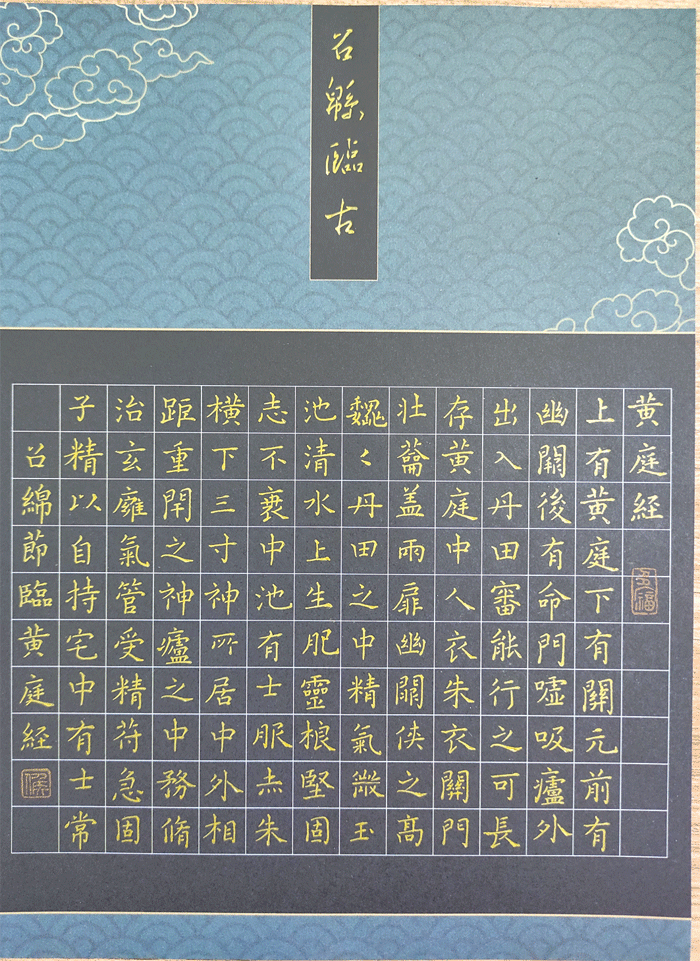 召緜臨古
黄庭経
上有黄庭下有關元前有
幽闕後有命門嘘吸廬外
出入丹田審能行之可長
存黄庭中人衣朱衣關門
壮蘥盖兩扉幽關侠之高
魏〻丹田之中精氣微玉
池清水上生肥靈根堅固
志不衰中池有士服赤朱
横下三寸神所居中外相
距重閇之神廬之中務脩
治玄廱氣管受精苻急固
子精以自持宅中有士常
召綿節臨黄庭経